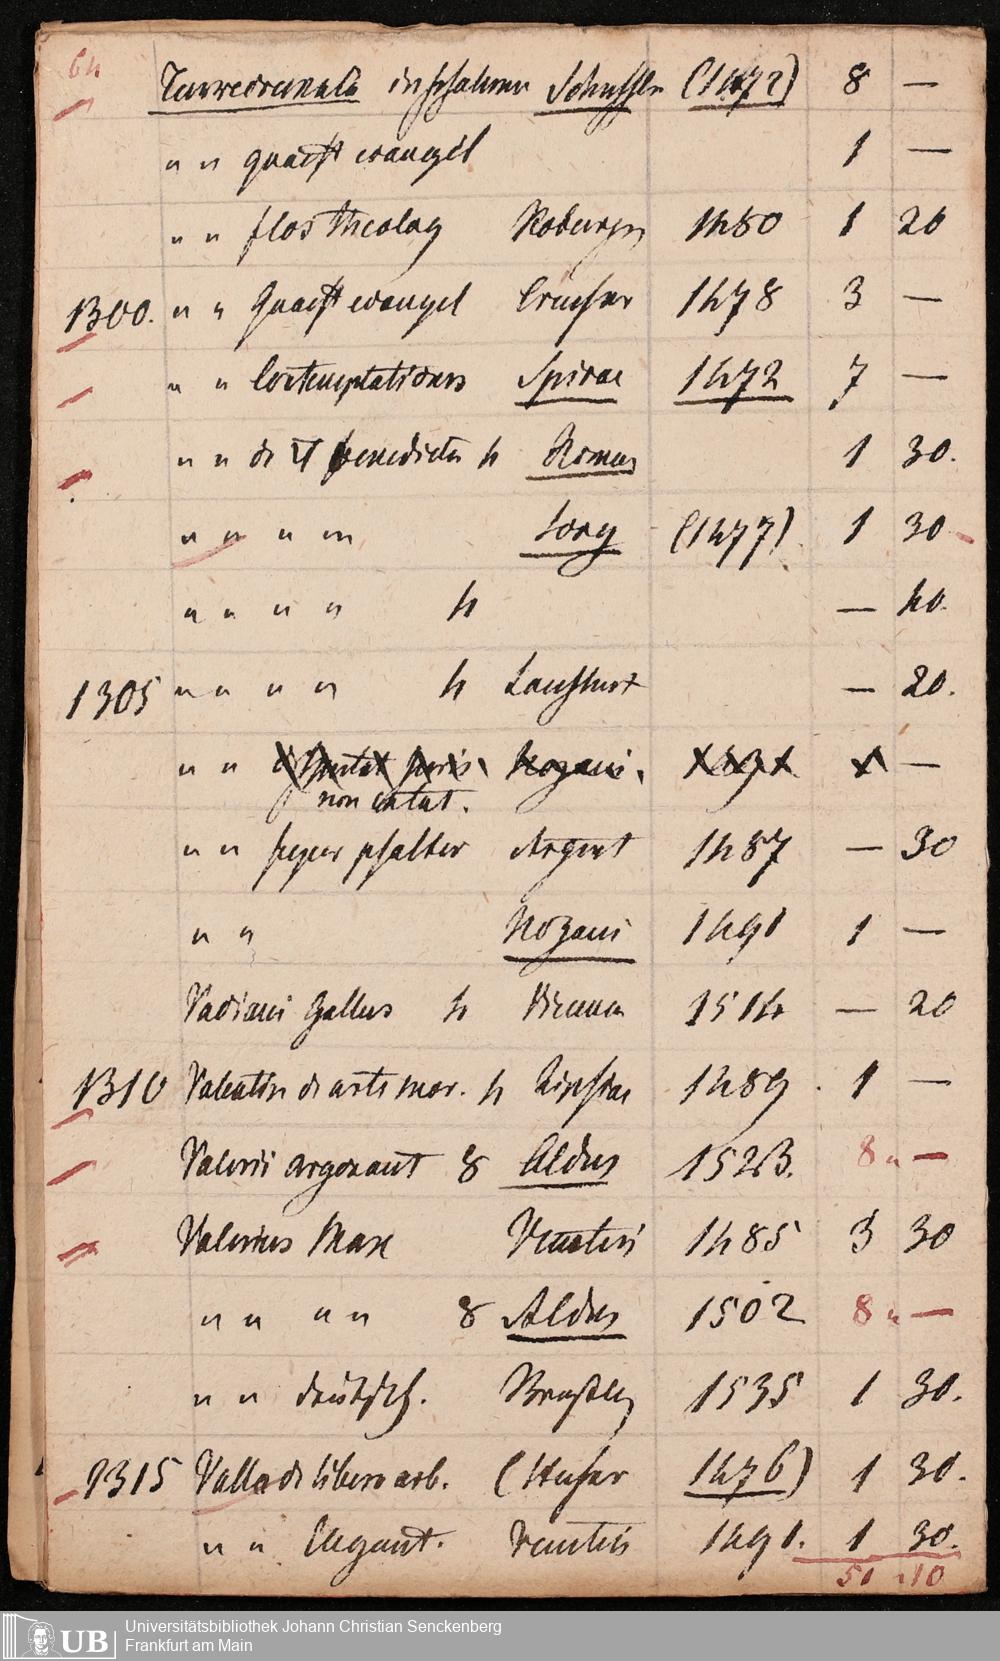 64
Turrecremata in psalmos Schussler (1472) 8 —
" " quaest evangel 1 —
" " flos theolog Koburger 1480 1 20
1300. " " Quaest evangel Creusner 1478 3 —
" " Contemplationes Spirae 1472 7 —
" " de benedicta 4 Romae 1 30.
" " " " Sorg (1477) 1 30
" " " " 4 — 40.
1305 " " " " 4 Landshut — 20.
" " non extat. —
" " super psalter Argent 1487 — 30
" " Hozani 1491 1 —
Vadiani Gallus 4 Vienna 1514 — 20
1310 Valentin de arte mor. 4 Lipsiae 1489. 1 —
Valerii argonaut 8 Aldus 1523. 8 " —
Valerius Max Venetiis 1485 3 30
" " " " 8 Aldus 1502 8 " —
" " deutsch. 1535 1 30.
1315 Valla de libero arb. (Husner 1476) 1 30.
" " Elegant. Venetiis 1491. 1 30.
51 " 10
UB
Universitätsbibliothek Johann Christian Senckenberg
Frankfurt am Main